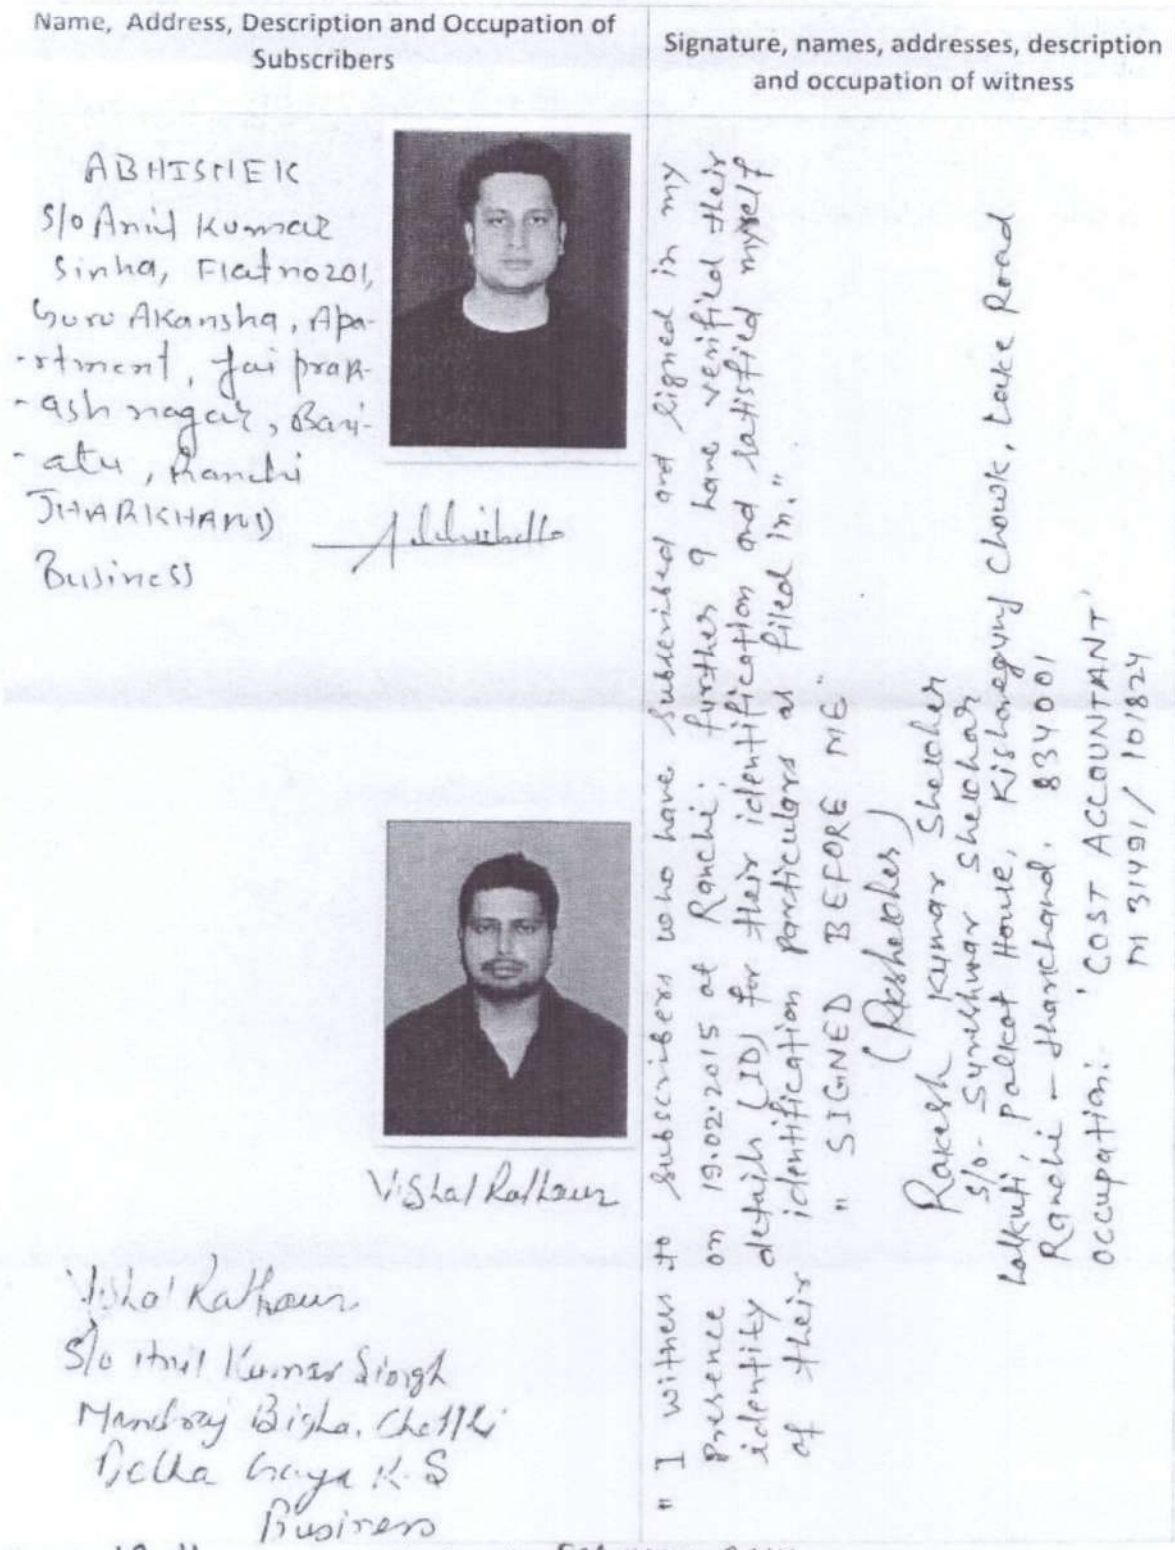 Name, Address, Description and Occupation of
Subscribers
ABHISHEK
S/o Anil Kumar
Sinha, Flat no 201,
Guru Akansha, Apa-
-rtment, Jai prak-
-ash nagar, Bari-
-atu, Ranchi
JHARKHAND
Business
Vishal Rathaur
Vishal Rathaur
S/o Anil Kumar Singh
Bigha,
Gaya
Business
Signature, names, addresses, description
and occupation of witness
" I witness to subscribers who have subscribed and signed in my
presence on 19.02.2015 at Ranchi; further I have verified their
identity details (ID) for their identification and satisfied myself
of their identification particulars as filed in."
" SIGNED BEFORE ME "
Rakesh Kumar Shekhar
S/o- Sureshwar Shekhar
Lalkuti, Palkot House, Kishoregunj Chowk, Lake Road
Ranchi - Jharkhand. 834001
Occupation: 'COST ACCOUNTANT'
M 31491/101824